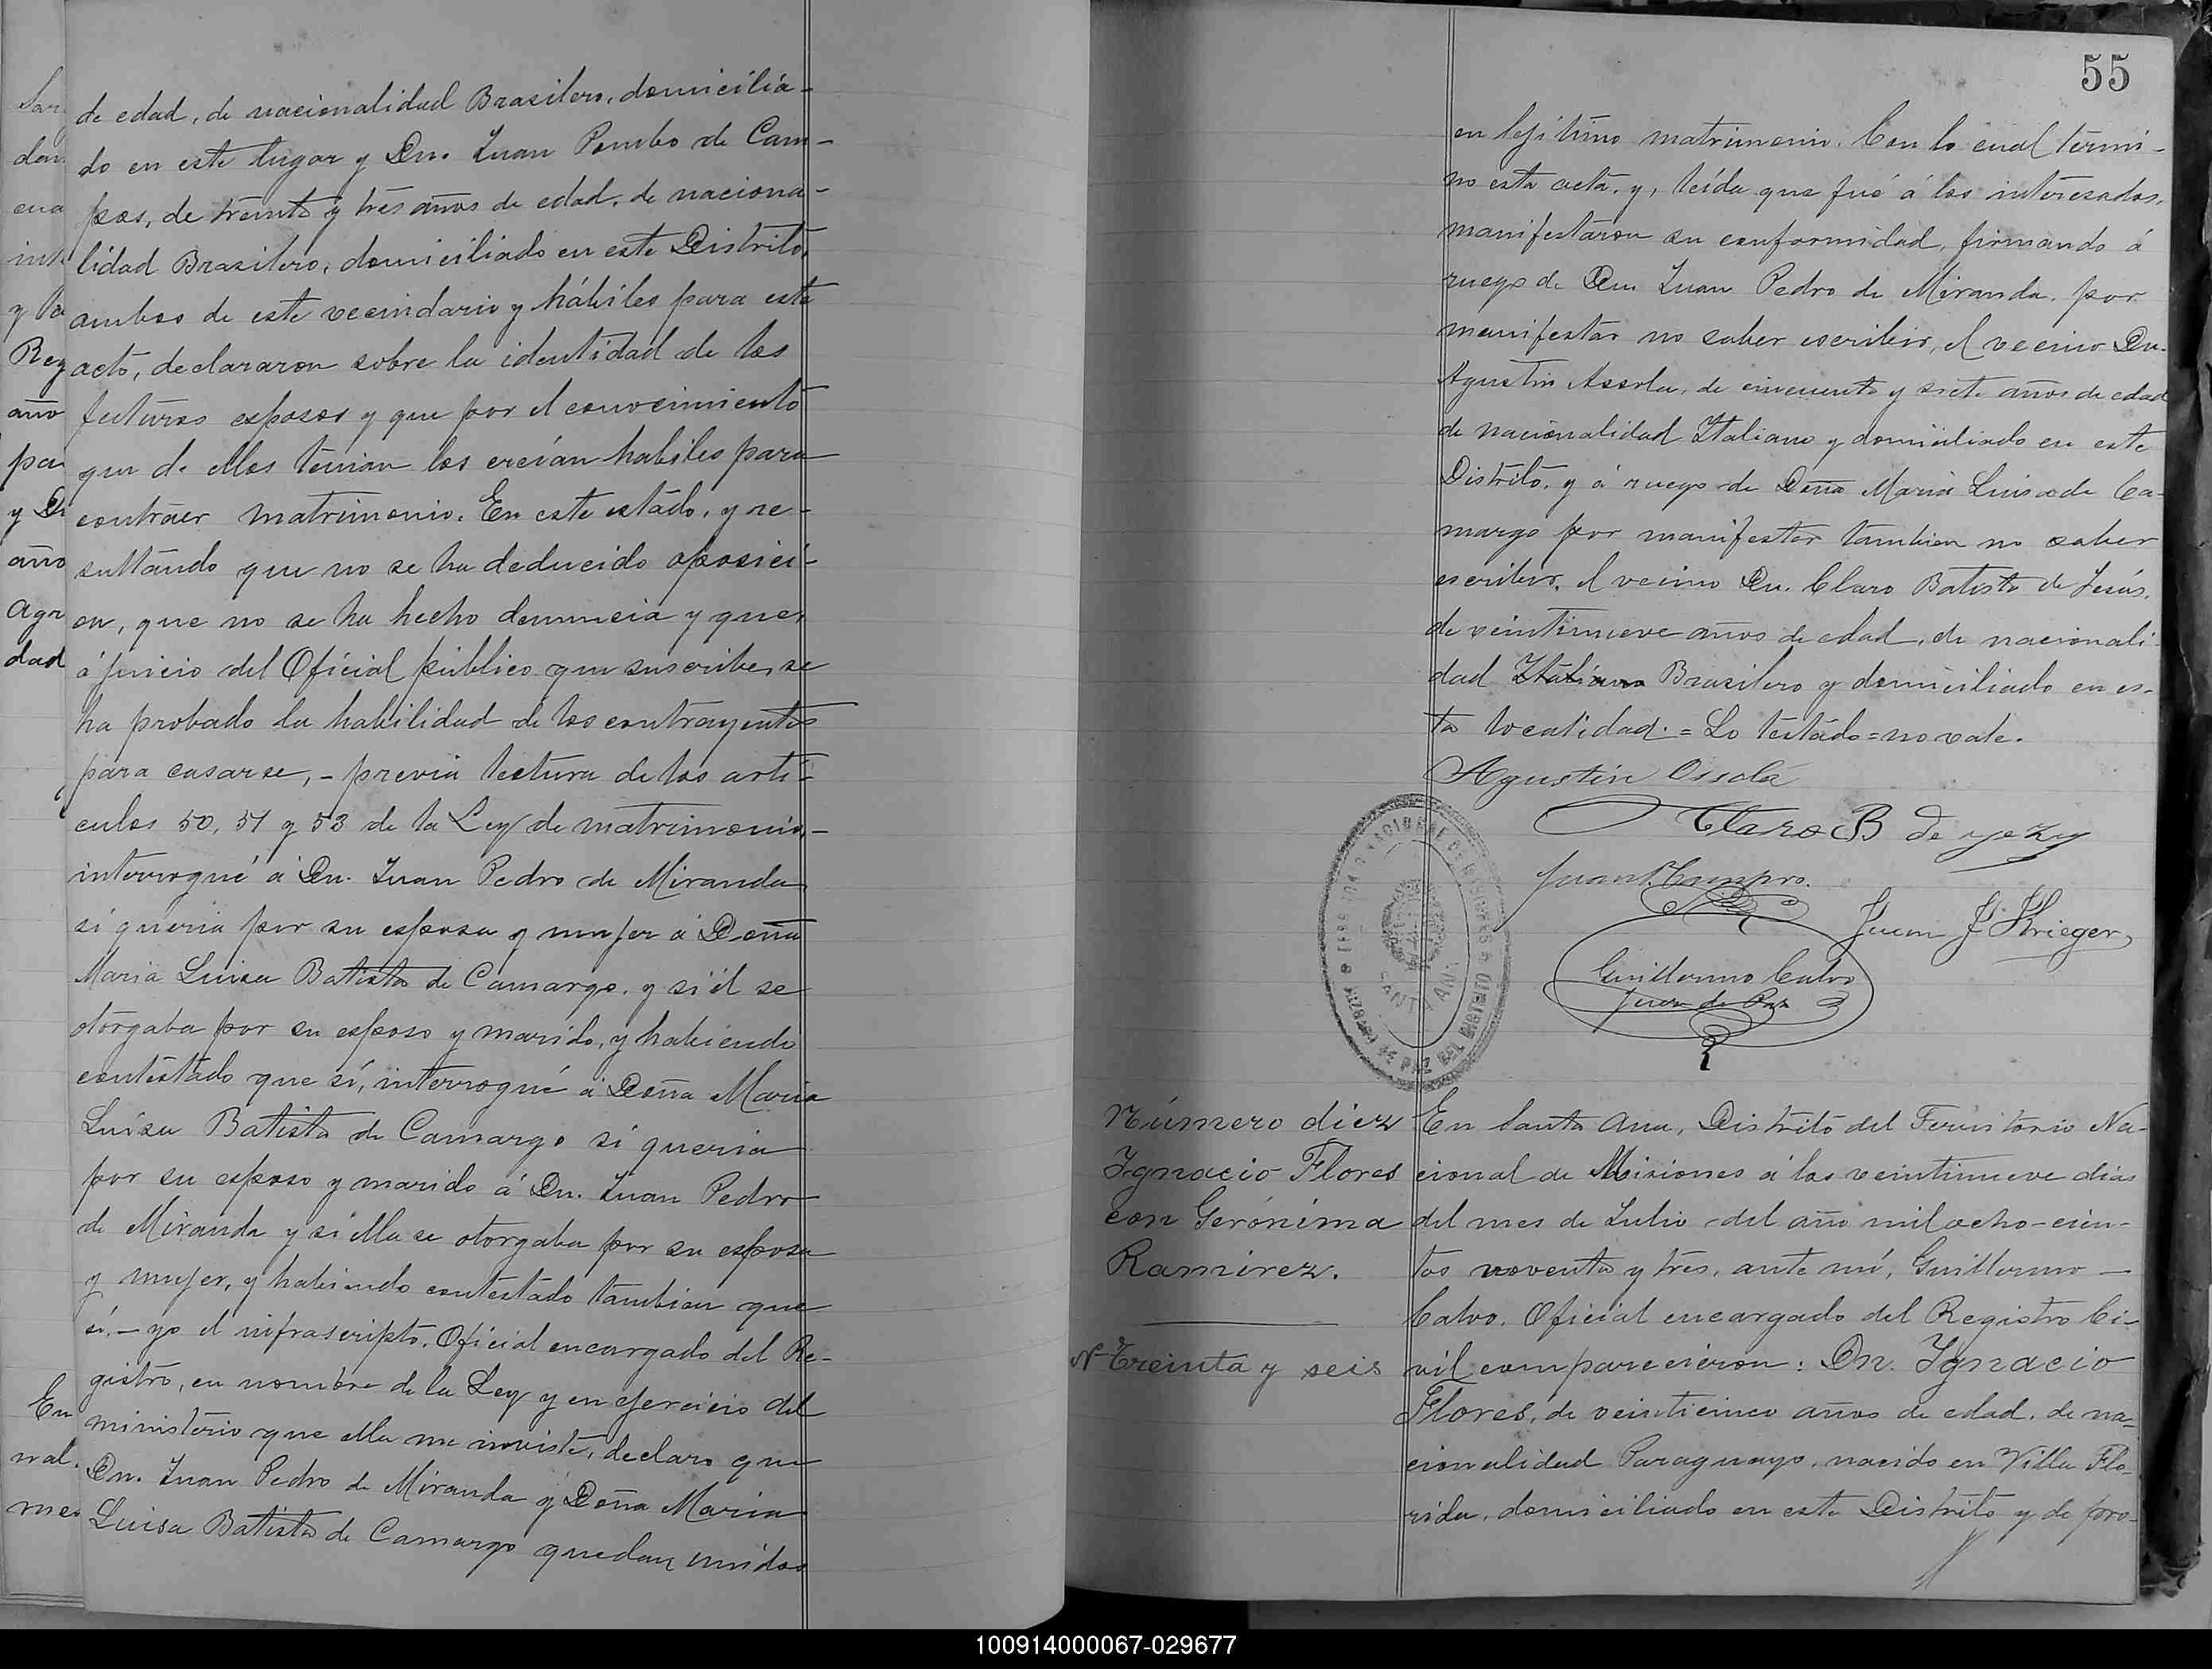 de edad, de nacionalidad Brasilero, domicilia-
do en este lugar y Dn. Juan Pombo de Cam-
pos, de treinta y tres años de edad, de naciona-
lidad Brasilero, domiciliado en este Distrito,
ambos de este vecindario y hábiles para este
acto, declararon sobre la identidad de los
futuros esposos y que por el conocimiento
que de ellos tenian los creían habiles para
contraer matrimonio. En este estado, y re-
sultando que no se ha deducido oposici-
on, que no se ha hecho denuncia y que,
á juicio del Oficial público que suscribe, se
ha probado la habilidad de los contrayentes
para casarse, - previa lectura de los arti-
culos 50, 51 y 53 de la Ley de matrimonio, -
interrogué á Dn. Juan Pedro de Miranda
si queria por su esposa y mujer á Doña
Maria Luisa Batista de Camargo, y si él se
otorgaba por su esposo y marido, y habiendo
contestado que sí, interrogué á Doña Maria
Luisa Batista de Camargo si queria
por su esposo y marido á Dn. Juan Pedro
de Miranda y si ella se otorgaba por su esposa
y mujer, y habiendo contestado tambien que
sí, - yo el infrascripto, Oficial encargado del Re-
gistro, en nombre de la Ley y en ejercicio del
ministerio que ella me inviste, declaro que
Dn. Juan Pedro de Miranda y Doña Maria
Luisa Batista de Camargo quedan unidos
55
en lejítimo matrimonio. Con lo cual termi-
no esta acta, y, leída que fué á los interesados,
manifestaron su conformidad, firmando á
ruego de Dn. Juan Pedro de Miranda, por
manifestar no saber escribir, el vecino Dn.
Agustin Assola, de cincuenta y siete años de edad
de nacionalidad Italiano y domiciliado en este
Distrito, y á ruego de Doña Maria Luisa de Ca-
margo por manifestar tambien no saber
escribir, el vecino Dn. Claro Batista de Jesús,
de veintinueve años de edad, de nacionali-
dad Italiano Brasilero y domiciliado en es-
ta localidad. = Lo testado = no vale.
Agustin Ossola
Claro B de yezy
Juan P. Campos.
Juan J Krieger
Guillermo Calvo
Juez de Paz
JUZGADO DE PAZ DEL DISTRITO
SANTA ANA
Número diez
Ignacio Flores
con Gerónima
Ramirez.
N- Treinta y seis
En Santa Ana, Distrito del Territorio Na-
cional de Misiones á los veintinueve dias
del mes de Julio del año mil ocho-cien-
tos noventa y tres, ante mí, Guillermo
Calvo, Oficial encargado del Registro Ci-
vil comparecieron: Dn. Ignacio
Flores, de veinticinco años de edad, de na-
cionalidad Paraguayo, nacido en Villa Flo-
rida, domiciliado en este Distrito y de pro-
100914000067-029677